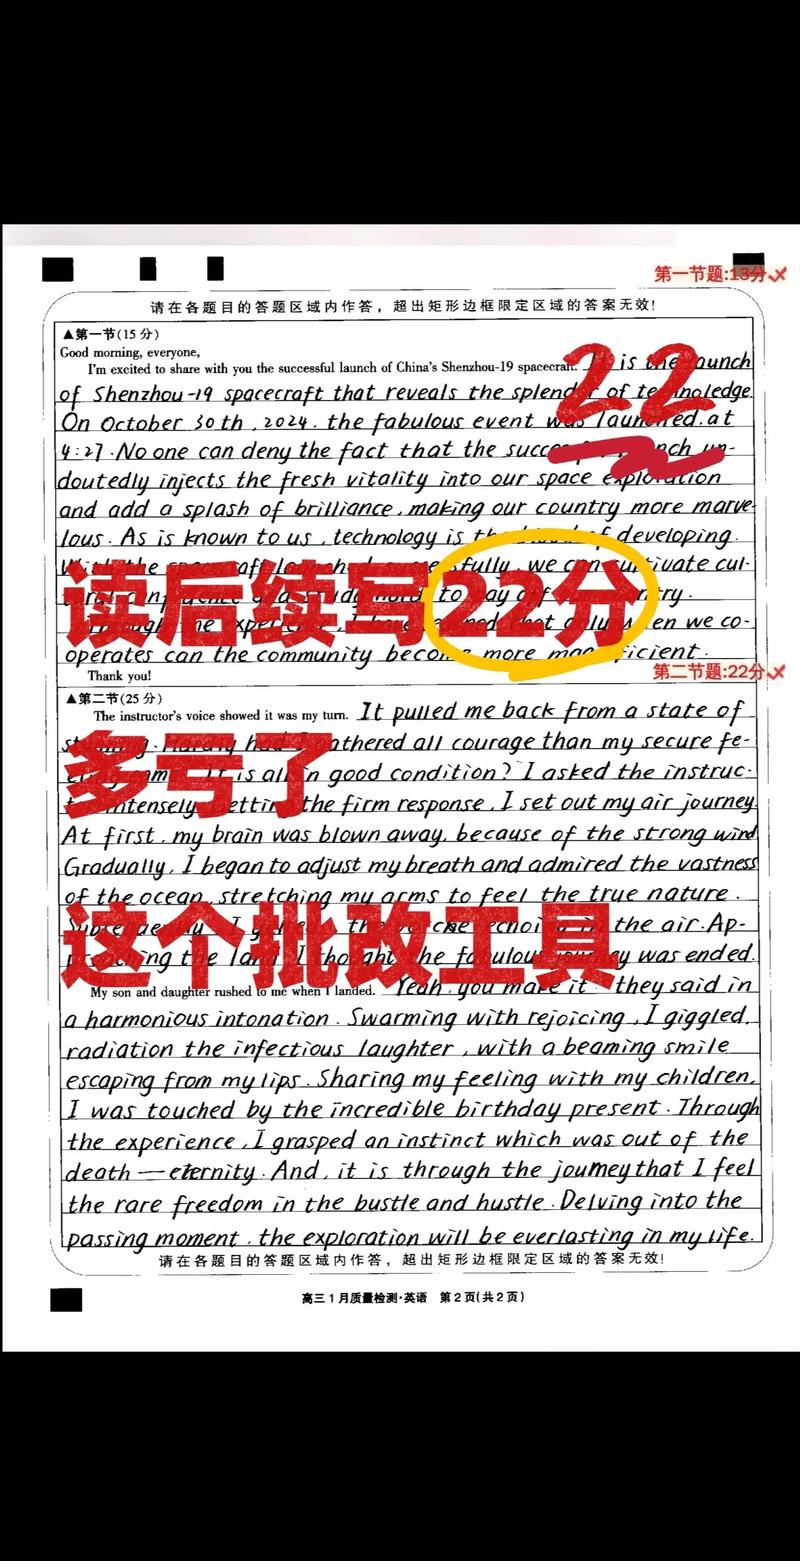 第一节题:13分
请在各题目的答题区域内作答，超出矩形边框限定区域的答案无效!
▲第一节(15 分)
Good morning, everyone,
I'm excited to share with you the successful launch of China's Shenzhou-19 spacecraft. is the launch
22
of Shenzhou-19 spacecraft that reveals the splendor of technoledge.
On October 30th, 2024, the fabulous event was launched at
4:27. No one can deny the fact that the launch un-
doubtedly injects the fresh vitality into our space exploration
and add a splash of brilliance, making our country more marve-
lous. As is known to us, technology is the of developing.
we can cultivate cul-
读后续写22分
to
when we co-
operates can the community become more magnificient.
第二节题:22分
Thank you!
▲第二节(25 分)
The instructor's voice showed it was my turn. It pulled me back from a state of
gathered all courage than my secure fe-
多亏了
is all in good condition? I asked the instruc-
intensely. Getting the firm response, I set out my air journey.
At first, my brain was blown away, because of the strong wind.
Gradually, I began to adjust my breath and admired the vastness
of the ocean, stretching my arms to feel the true nature.
the air. Ap-
这个批改工具
I thought the fabulous journey was ended.
My son and daughter rushed to me when I landed. "Yeah, you make it" they said in
a harmonious intonation. Swarming with rejoicing, I giggled,
radiation the infectious laughter, with a beaming smile
escaping from my lips. Sharing my feeling with my children,
I was touched by the incredible birthday present. Through
the experience, I grasped an instinct which was out of the
death — eternity. And, it is through the journey that I feel
the rare freedom in the bustle and hustle. Delving into the
passing moment, the exploration will be everlasting in my life.
请在各题目的答题区域内作答，超出矩形边框限定区域的答案无效!
高三1月质量检测·英语 第2页(共2页)